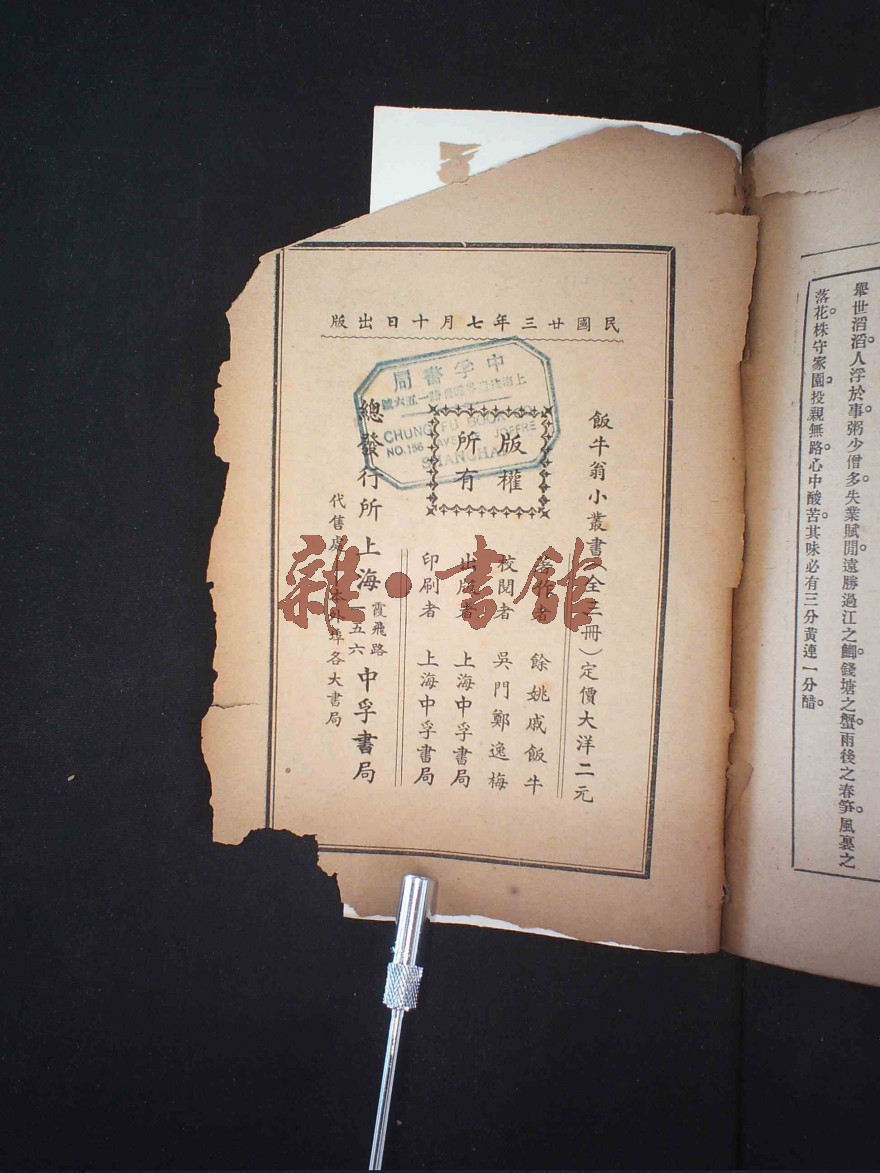 舉世滔滔。人浮於事。粥少僧多。失業賦閒。遠勝過江之鯽。錢塘之蟹。雨後之春筍。風裏之
落花。株守家園。投親無路。心中酸苦。其味必有三分黃連一分醋。
民國廿三年七月十日出版
飯牛翁小叢書（全二冊）定價大洋二元
版權
所有
著作者 餘姚戚飯牛
校閱者 吳門鄭逸梅
出版者 上海中孚書局
印刷者 上海中孚書局
總發行所 上海 霞飛路
一五六 中孚書局
代售處 本外埠各大書局
中孚書局
CHUNG FU BOOK CO.
NO.156 AVENUE JOFFRE
SHANGHAI
雜·書館